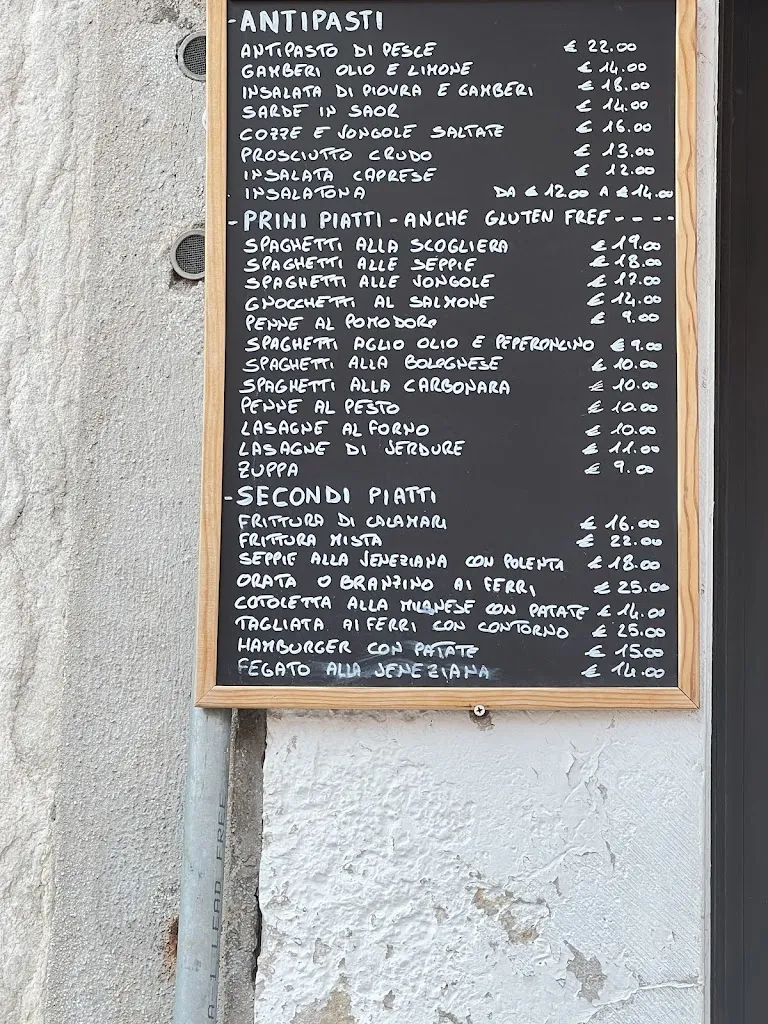 - ANTIPASTI
ANTIPASTO DI PESCE € 22.00
GAMBERI OLIO E LIMONE € 14.00
INSALATA DI PIOVRA E GAMBERI € 18.00
SARDE IN SAOR € 14.00
COZZE E VONGOLE SALTATE € 16.00
PROSCIUTTO CRUDO € 13.00
INSALATA CAPRESE € 12.00
INSALATONA DA € 12.00 A € 14.00
- PRIMI PIATTI - ANCHE GLUTEN FREE - - - -
SPAGHETTI ALLA SCOGLIERA € 19.00
SPAGHETTI ALLE SEPPIE € 18.00
SPAGHETTI ALLE VONGOLE € 17.00
GNOCCHETTI AL SALMONE € 14.00
PENNE AL POMODORO € 9.00
SPAGHETTI AGLIO OLIO E PEPERONCINO € 9.00
SPAGHETTI ALLA BOLOGNESE € 10.00
SPAGHETTI ALLA CARBONARA € 10.00
PENNE AL PESTO € 10.00
LASAGNE AL FORNO € 10.00
LASAGNE DI VERDURE € 11.00
ZUPPA € 9.00
- SECONDI PIATTI
FRITTURA DI CALAMARI € 16.00
FRITTURA MISTA € 22.00
SEPPIE ALLA VENEZIANA CON POLENTA € 18.00
ORATA O BRANZINO AI FERRI € 25.00
COTOLETTA ALLA MILANESE CON PATATE € 14.00
TAGLIATA AI FERRI CON CONTORNO € 25.00
HAMBURGER CON PATATE € 15.00
FEGATO ALLA VENEZIANA € 14.00
A 1 LEAD FREE